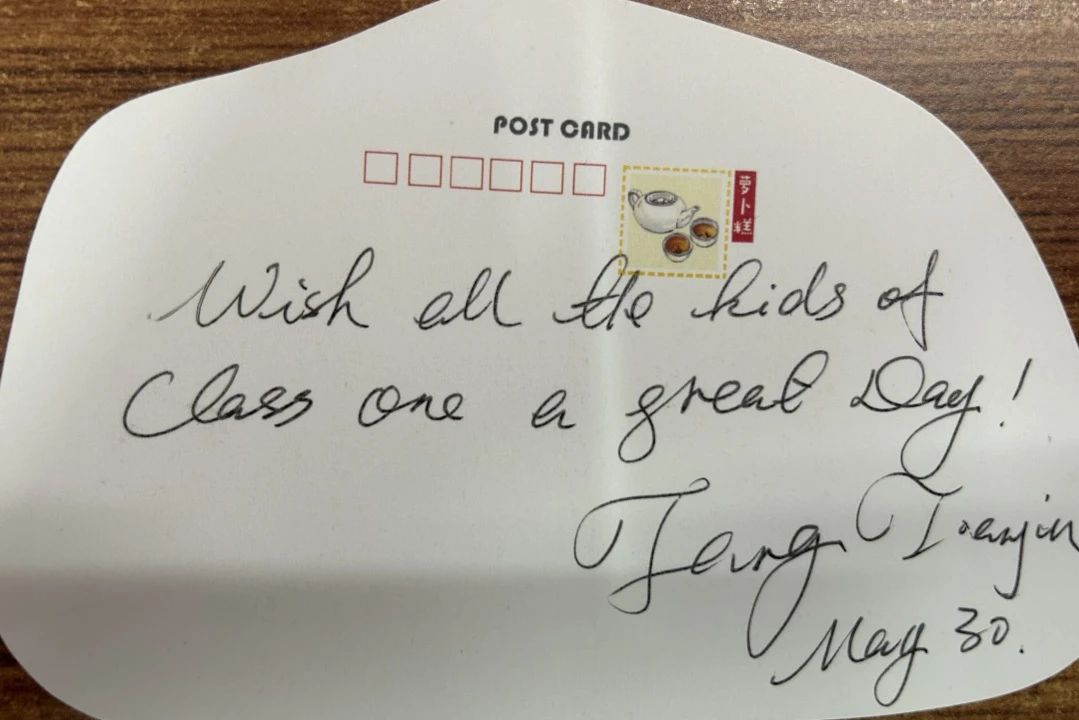 POST CARD
萝卜糕
Wish all the kids of
Class one a great Day!
Tang Tianjin
May 30.